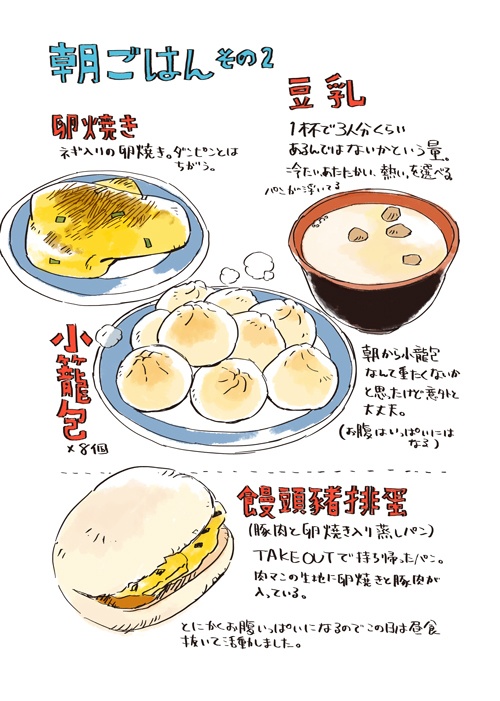 朝ごはん その2
豆乳
1杯で3人分くらい
あるんではないかという量。
冷たい、あたたかい、熱い、を選べる
パンが浮いてる
卵焼き
ネギ入りの卵焼き。ダンピンとは
ちがう。
小籠包
×8個
朝から小龍包
なんて重たくないか
と思ったけど意外と
大丈夫。
(お腹はいっぱいには
なる)
饅頭豬排蛋
(豚肉と卵焼き入り蒸しパン)
TAKEOUTで持ち帰ったパン。
肉マンの生地に卵焼きと豚肉が
入っている。
とにかくお腹いっぱいになるのでこの日は昼食
抜いて活動しました。